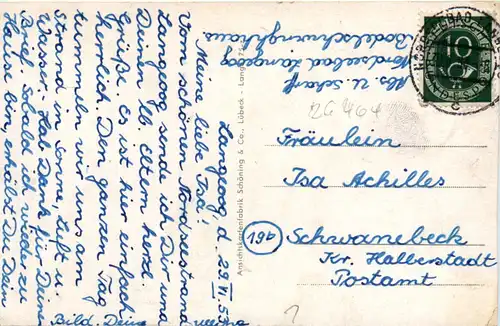 Langeoog d. 29.VI.5
Meine liebe Isa!
Vom schönen Nordseestrand
Langeoog sende ich Dir und
Deinen lb. Eltern herzl.
Grüße. Es ist hier einfach
herrlich. Den ganzen Tag
tummeln wir uns am
Strand in Sonne, Luft u.
Wasser. Hab Dank für Deinen
Brief. Sobald ich wieder zu
Hause bin, erhälst Du Dein
Bild. Deine
Abs. U. Scharf
Nordseebad Langeoog
Bodelschwinghhaus
Ansichtskartenfabrik Schöning & Co., Lübeck - Lang
10
26464
Fräulein
Isa Achilles
19b
Schwanebeck
Kr. Halberstadt
Postamt